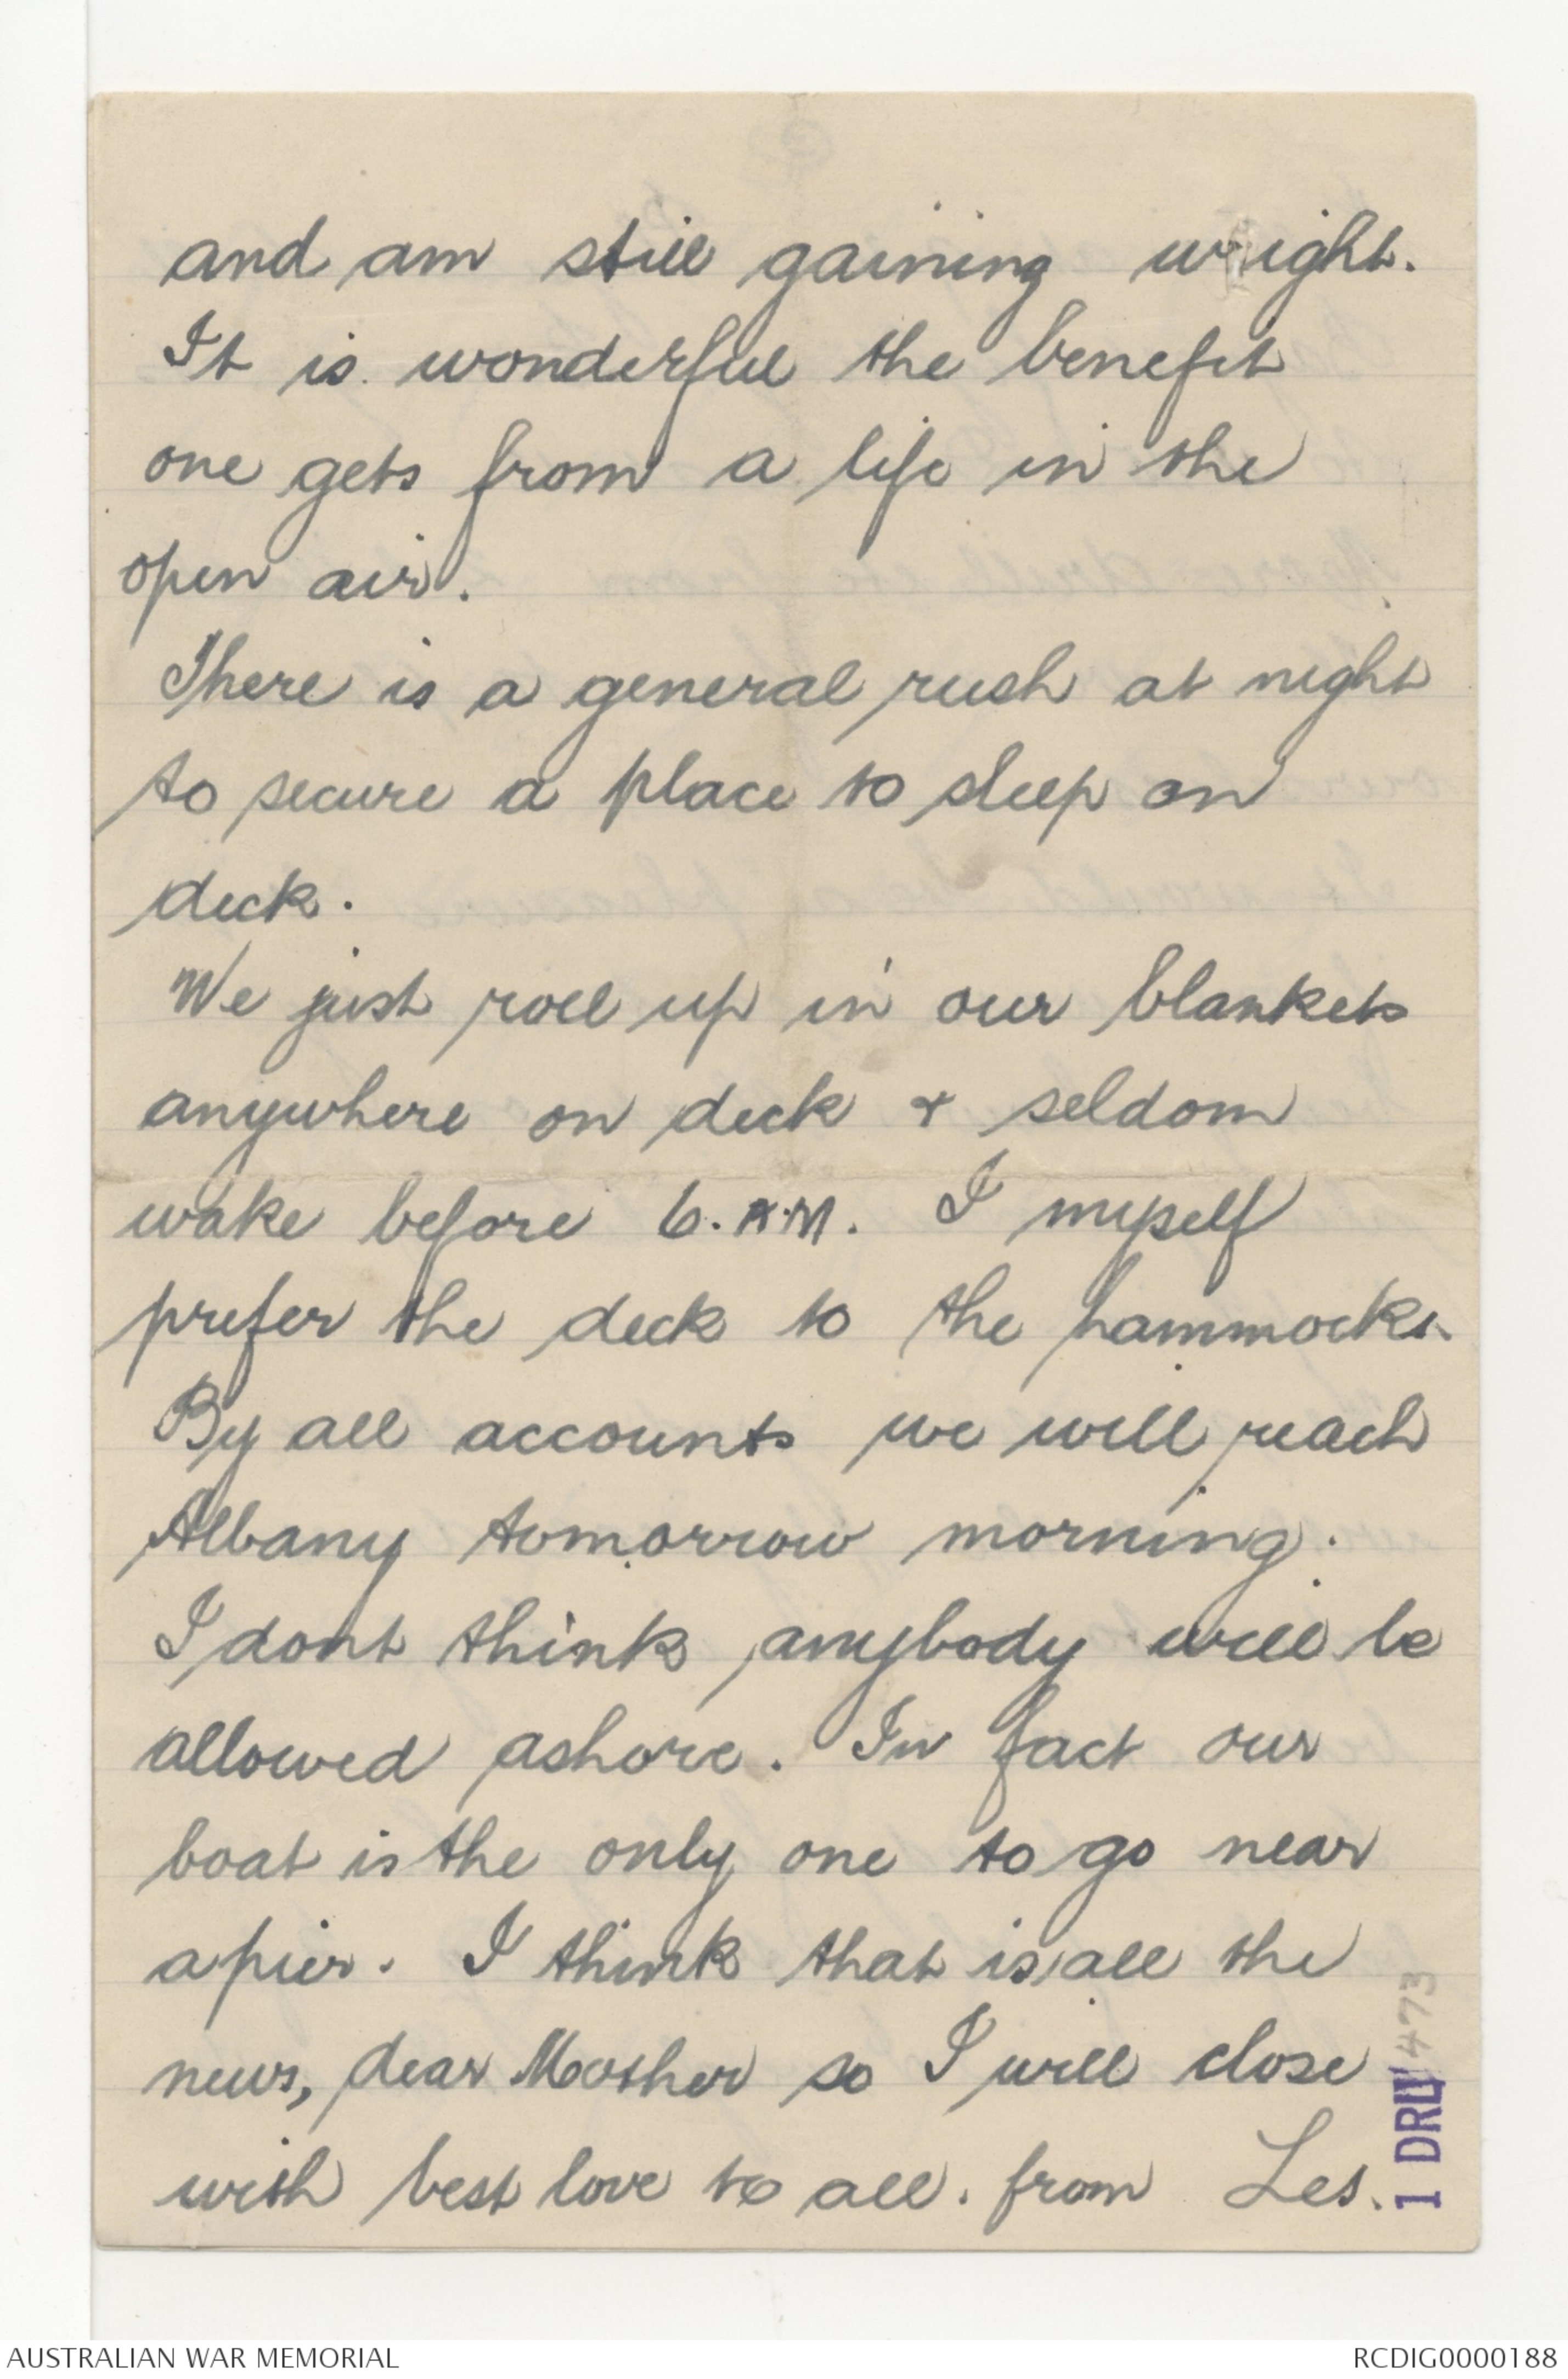 and am still gaining weight.
It is wonderful the benefit
one gets from a life in the
open air.
There is a general rush at night
to secure a place to sleep on
deck.
We just roll up in our blankets
anywhere on deck & seldom
wake before 6. A.M. I myself
prefer the deck to the hammocks.
By all accounts we will reach
Albany tomorrow morning.
I dont think anybody will be
allowed ashore. In fact our
boat is the only one to go near
a pier. I think that is all the
news, dear Mother so I will close
with best love to all. from Les.
1 DRL 473
AUSTRALIAN WAR MEMORIAL
RCDIG0000188